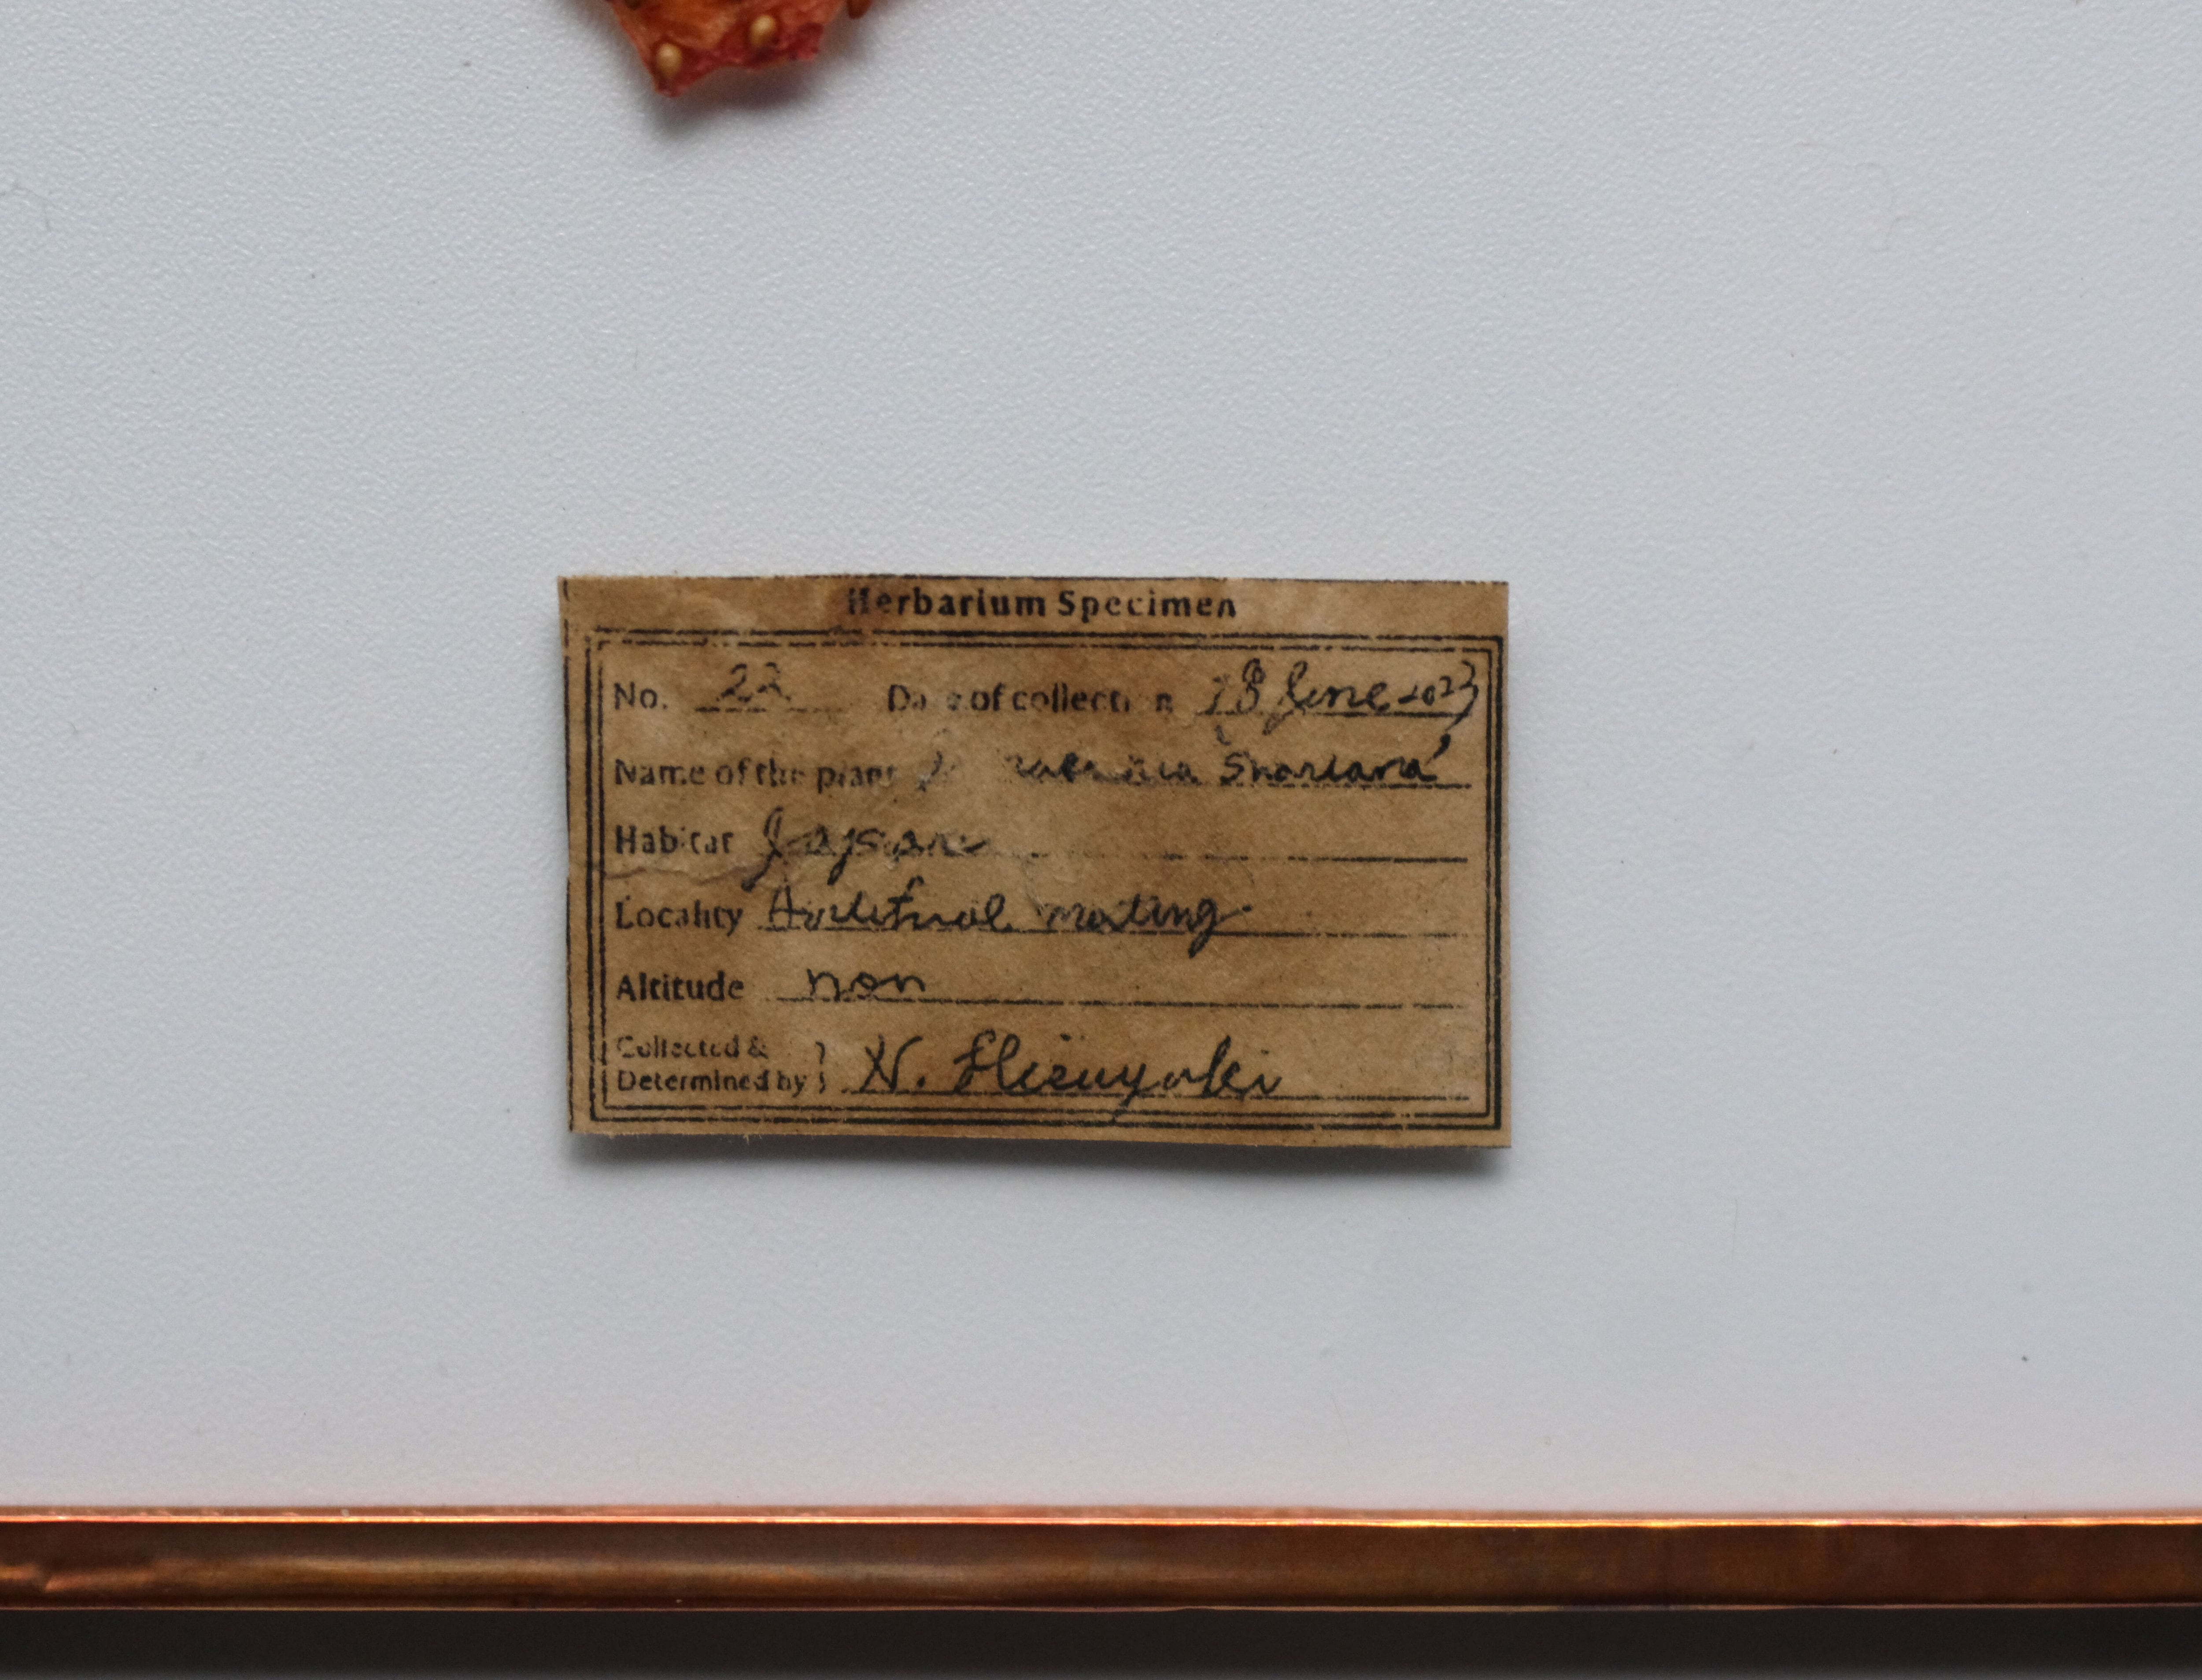 Herbarium Specimen
No. 22 Date of collection 18 June 2023
Name of the plant
Habitat Japan
Locality mating.
Altitude non
Collected &
Determined by } N. Hisayuki